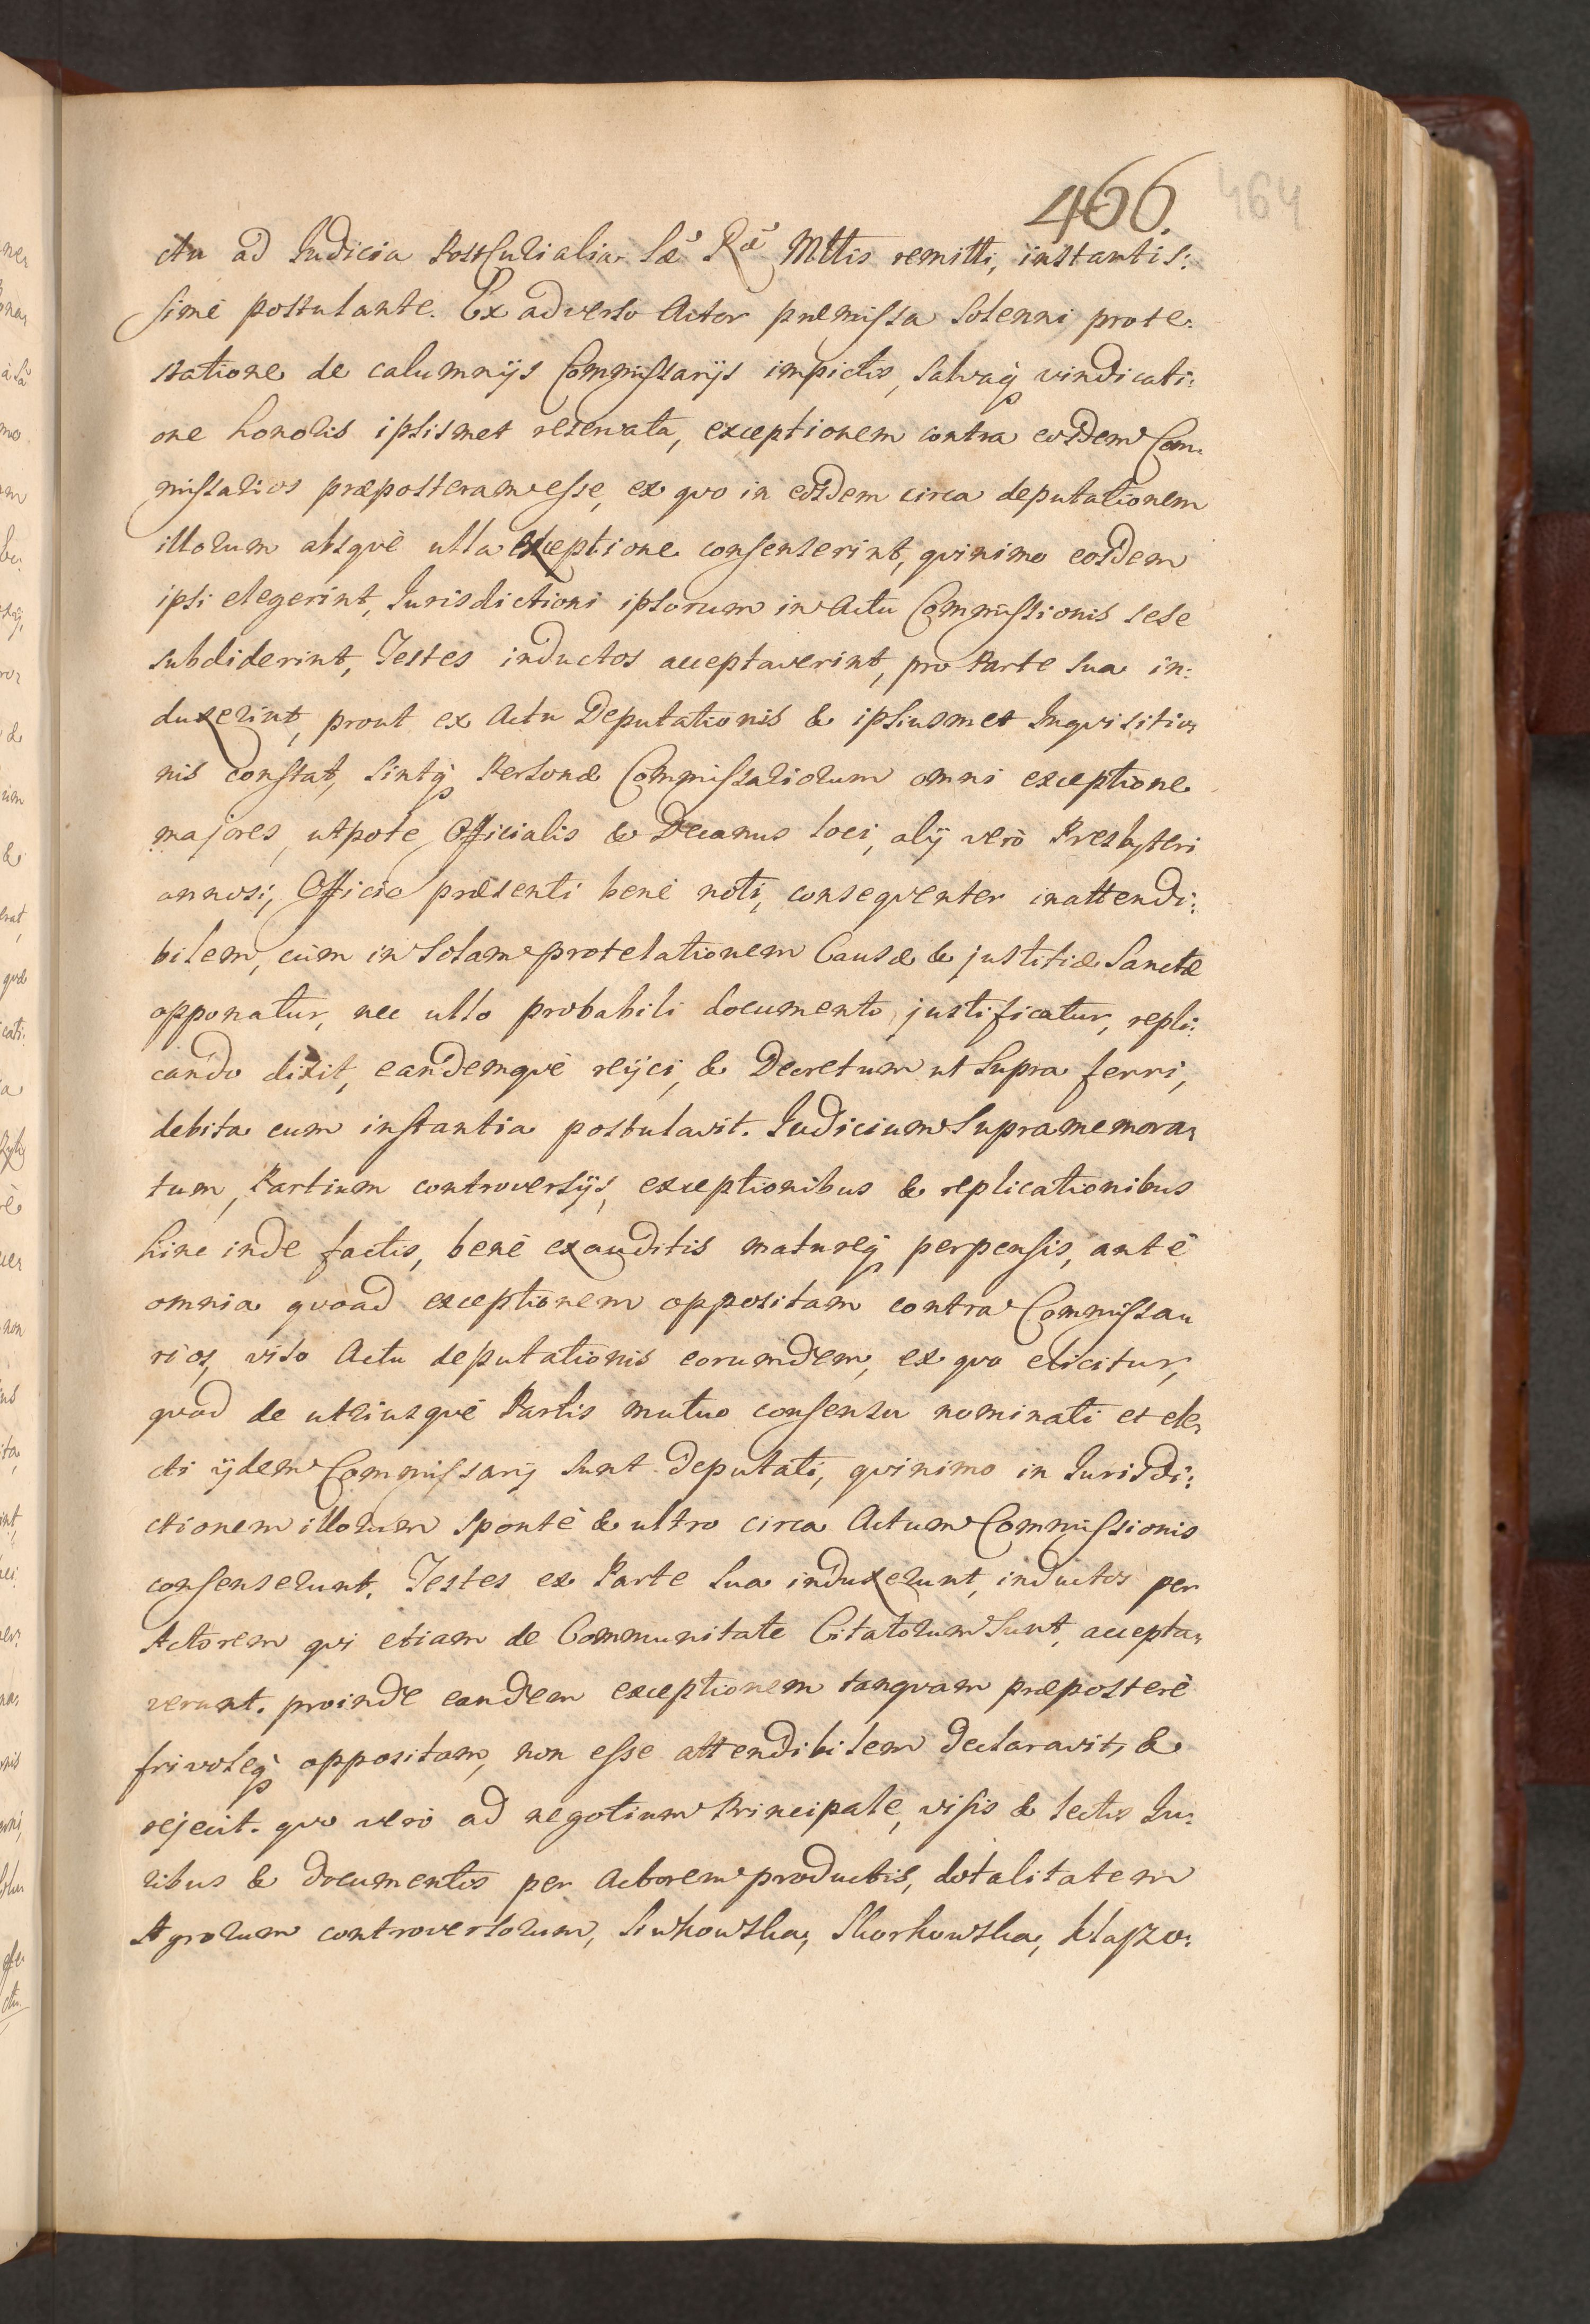 466.
464
ctu ad Judicia PostCurialia Sæ Ræ Mttis remitti, instantis:
simè postulante. Ex adverso Actor præmissa solenni prote:
statione de calumnijs Commissarijs impictis, salvaq vindicati:
one honoris ipsismet reservata, exceptionem contra eosdem Com:
missarios præposteram esse, ex quo in eosdem circa deputationem
illorum absquè ulla exceptione consenserint, quinimo eosdem
ipsi elegerint, Jurisdictioni ipsorum in Actu Commissionis sese
subdiderint, Testes inductos acceptaverint, pro Parte sua in:
duxerint, prout ex Actu Deputationis & ipsiusmet Inquisitio:
nis constat, sintq Personæ Commissariorum omni exceptione
majores, utpote Officialis & Decanus loci, alij verò Presbyteri
annosi, Officio præsenti benè noti, consequenter inattendi:
bilem, cùm in solam protelationem Causæ & justitiæ Sanctæ
opponatur, nec ullo probabili documento justificatur, repli:
cando dixit, eandemquè reijci, & Decretum ut supra ferri,
debita cum instantia postulavit. Judicium Supramemora:
tum, Partium controversijs, exceptionibus & replicationibus
hinc inde factis, benè exauditis matureq perpensis, antè
omnia quoad exceptionem oppositam contra Commissa:
rios, viso Actu deputationis eorumdem, ex quo elicitur,
quod de utriusquè Partis mutuo consensu nominati et ele:
cti ijdem Commissarij sunt deputati, quinimo in Jurisdi:
ctionem illorum spontè & ultro circa Actum Commissionis
consenserunt. Testes ex Parte sua induxerunt, inductos per
Actorem qui etiam de Communitate Citatorum sunt, accepta:
verunt. proinde eandem exceptionem tanquam præposterè
frivoleq oppositam, non esse attendibilem declaravit, &
rejecit. quo verò ad negotium Principale, visis & lectis Ju:
ribus & documentis per Actorem productis, dotalitatem
Agrorum controversorum, Sukowska, Skorkowska, Klaszo: